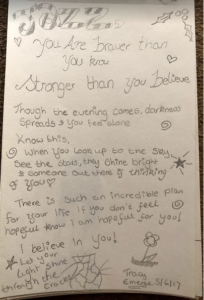 You Are braver than
you know
Stronger than you Believe
Though the evening comes, darkness
Spreads & you feel alone
Know this,
When you look up to the sky
See the stars, they shine bright
& someone out there is thinking
of you
There is such an incredible plan
for your life if you don't feel
hopeful know I am hopeful for you!
I believe in you!
Let your
light shine
through the
cracks
Tracy
5/6/17